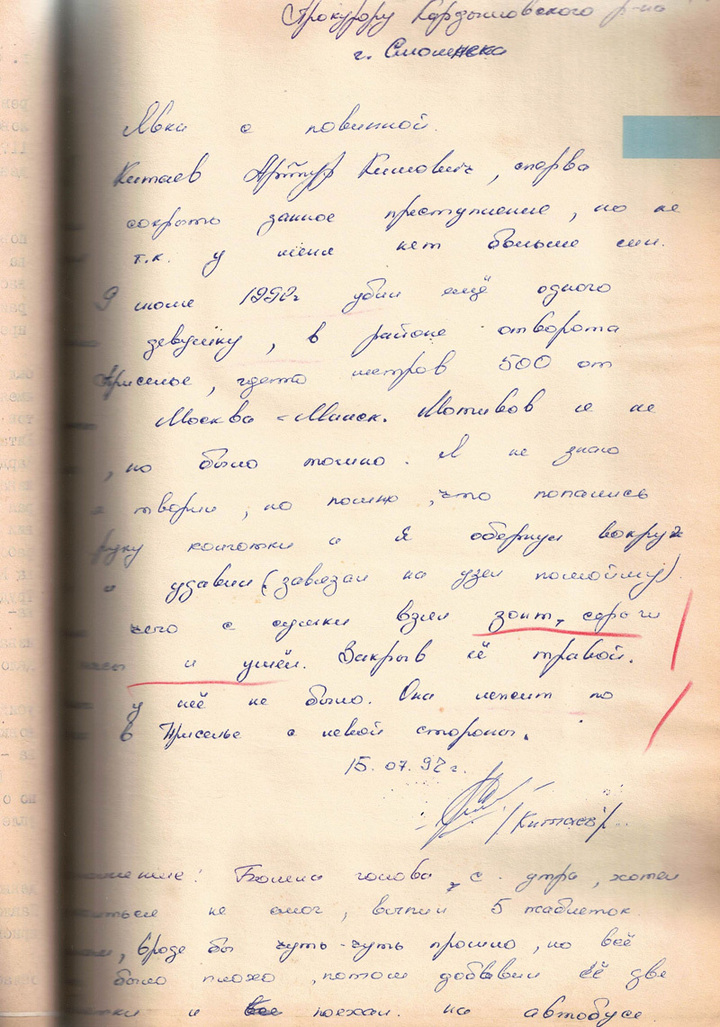 Прокурору Кардымовского р-на
г. Смоленска
Явка с повинной.
Китаев Артур Кимович, сперва
сокрыть данное преступление, но не
т.к. у меня нет больше сил.
9 июле 1992г убил ещё одного
девушку, в районе отворота
Приселье, где то метров 500 от
Москва - Минск. Мотивов я не
, но было тошно. Я не знаю
я творил, но помню, что попались
руку колготки и я обернул вокруг
и удавил (завязал на узел помойму)
чего с сумки взял зонт, серьги
часы и ушёл. Закрыв её травой.
у неё не было. Она лежит по
в Приселье с левой стороны.
15.07.92г.
/Китаев/
Болела голова, с утра, хотел
не смог, выпил 5 таблеток
, вроде бы чуть-чуть прошло, но всё
было плохо, потом добавил ещё две
и поехал на автобусе